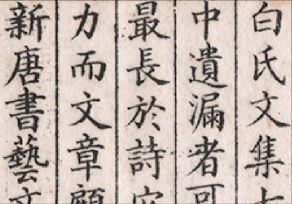 白氏文集七
中遺漏者可
最長於詩
力而文章
新唐書藝文